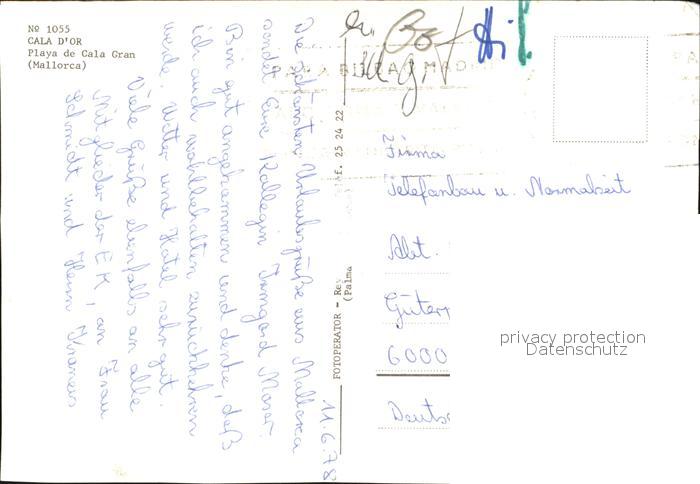 Nº 1055
CALA D'OR
Playa de Cala Gran
(Mallorca)
Die schönsten Urlaubsgrüße aus Mallorca
sendet Eure Kollegin Irmgard Moser.
Bin gut angekommen und denke, daß
ich auch wohlbehalten zurückkehren
werde. Wetter und Hotel sehr gut.
Viele Grüße ebenfalls an alle
Mitglieder der EK, an Frau
Schmidt und Herrn
11.6.78
FOTOPERATOR - Re
(Palma
f. 25 24 22
Firma
Telefonbau u. Normalzeit
Abt.
Güter
6000
Deuts
privacy protection
Datenschutz